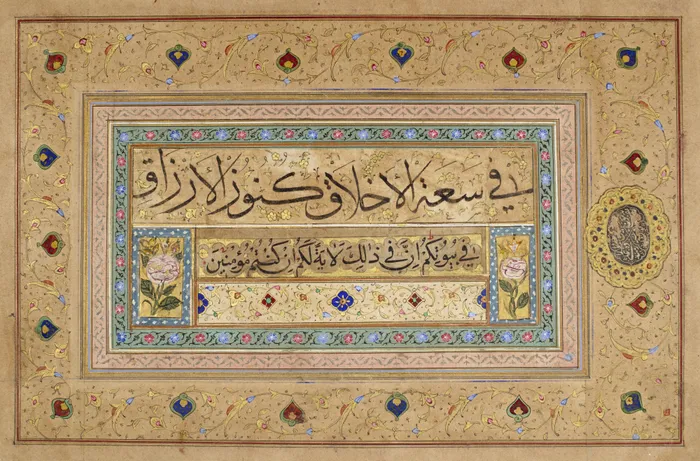 في سعة الاخلاق كنوز الارزاق
في بيوتكم ان في ذلك لاية لكم ان كنتم مؤمنين